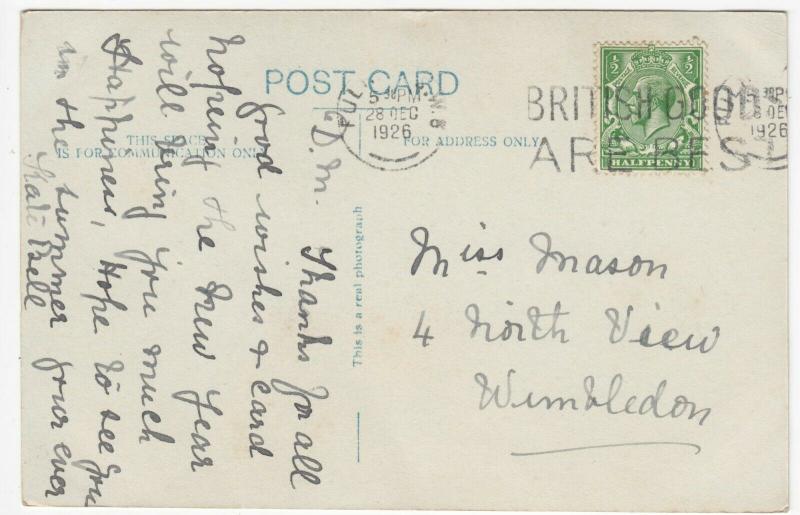 POST CARD
THIS SPACE
IS FOR COMMUNICATION ONLY
FOR ADDRESS ONLY
This is a real photograph
FUL
W.6
5 30 PM
28 DEC
1926
BRITISH GOODS
ARE BEST
30 PM
1926
½ ½
HALFPENNY
D. M. Thanks for all
good wishes & card
hopeing the New Year
will bring you much
Happiness, Hope to see you
in the summer your ever
Kate Bell
Miss Mason
4 North View
Wimbledon